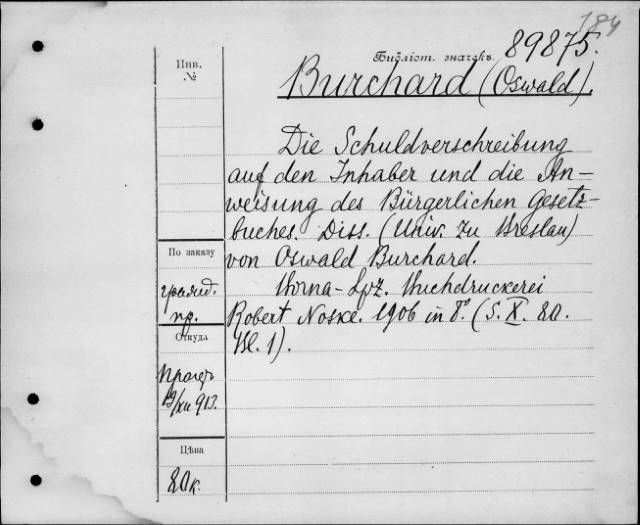 184
Библіот. значекъ. 89875.
Инв.
№
Burchard (Oswald).
Die Schuldverschreibung
auf den Inhaber und die An-
weisung des Bürgerlichen Gesetz-
buches. Diss. (Univ. zu Breslau)
von Oswald Burchard.
Borna-Lpz. Buchdruckerei
Robert Noske. 1906 in 8°. (S. X. 80.
Bl. 1).
По заказу
гражд.
пр.
Откуда
19/XII 913.
Цѣна
80 к.